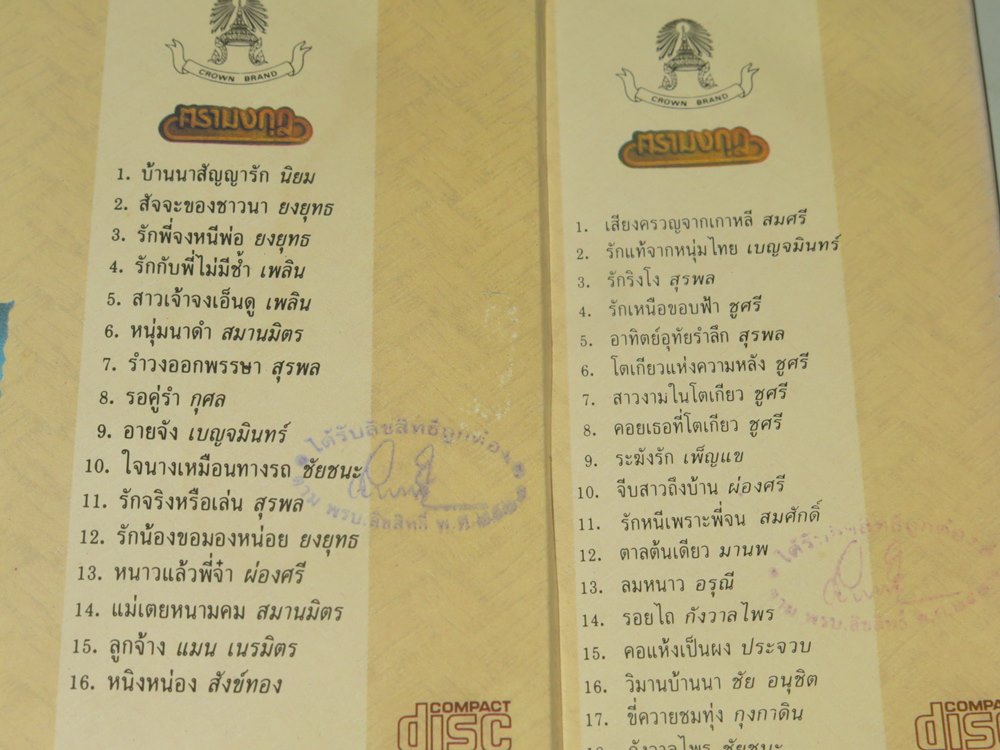 CROWN BRAND
ตรามงกุฎ
1. บ้านนาสัญญารัก นิยม
2. สัจจะของชาวนา ยงยุทธ
3. รักพี่จงหนีพ่อ ยงยุทธ
4. รักกับพี่ไม่มีช้ำ เพลิน
5. สาวเจ้าจงเอ็นดู เพลิน
6. หนุ่มนาดำ สมานมิตร
7. รำวงออกพรรษา สุรพล
8. รอคู่รำ กุศล
9. อายจัง เบญจมินทร์
10. ใจนางเหมือนทางรถ ชัยชนะ
11. รักจริงหรือเล่น สุรพล
12. รักน้องขอมองหน่อย ยงยุทธ
13. หนาวแล้วพี่จ๋า ผ่องศรี
14. แม่เตยหนามคม สมานมิตร
15. ลูกจ้าง แมน เนรมิตร
16. หนิงหน่อง สังข์ทอง
ได้รับลิขสิทธิ์ถูกต้อง
ตาม พรบ.ลิขสิทธิ์ พ.ศ.
COMPACT
disc
CROWN BRAND
ตรามงกุฎ
1. เสียงครวญจากเกาหลี สมศรี
2. รักแท้จากหนุ่มไทย เบญจมินทร์
3. รักริงโง สุรพล
4. รักเหนือขอบฟ้า ชูศรี
5. อาทิตย์อุทัยรำลึก สุรพล
6. โตเกียวแห่งความหลัง ชูศรี
7. สาวงามในโตเกียว ชูศรี
8. คอยเธอที่โตเกียว ชูศรี
9. ระฆังรัก เพ็ญแข
10. จีบสาวถึงบ้าน ผ่องศรี
11. รักหนีเพราะพี่จน สมศักดิ์
12. ตาลต้นเดียว มานพ
13. ลมหนาว อรุณี
14. รอยไถ กังวาลไพร
15. คอแห้งเป็นผง ประจวบ
16. วิมานบ้านนา ชัย อนุชิต
17. ขี่ควายชมทุ่ง กุงกาดิน
18. กังวาลไพร ชัยชนะ
ได้รับลิขสิทธิ์ถูกต้อง
ตาม พรบ.ลิขสิทธิ์ พ.ศ.
COMPA
disc